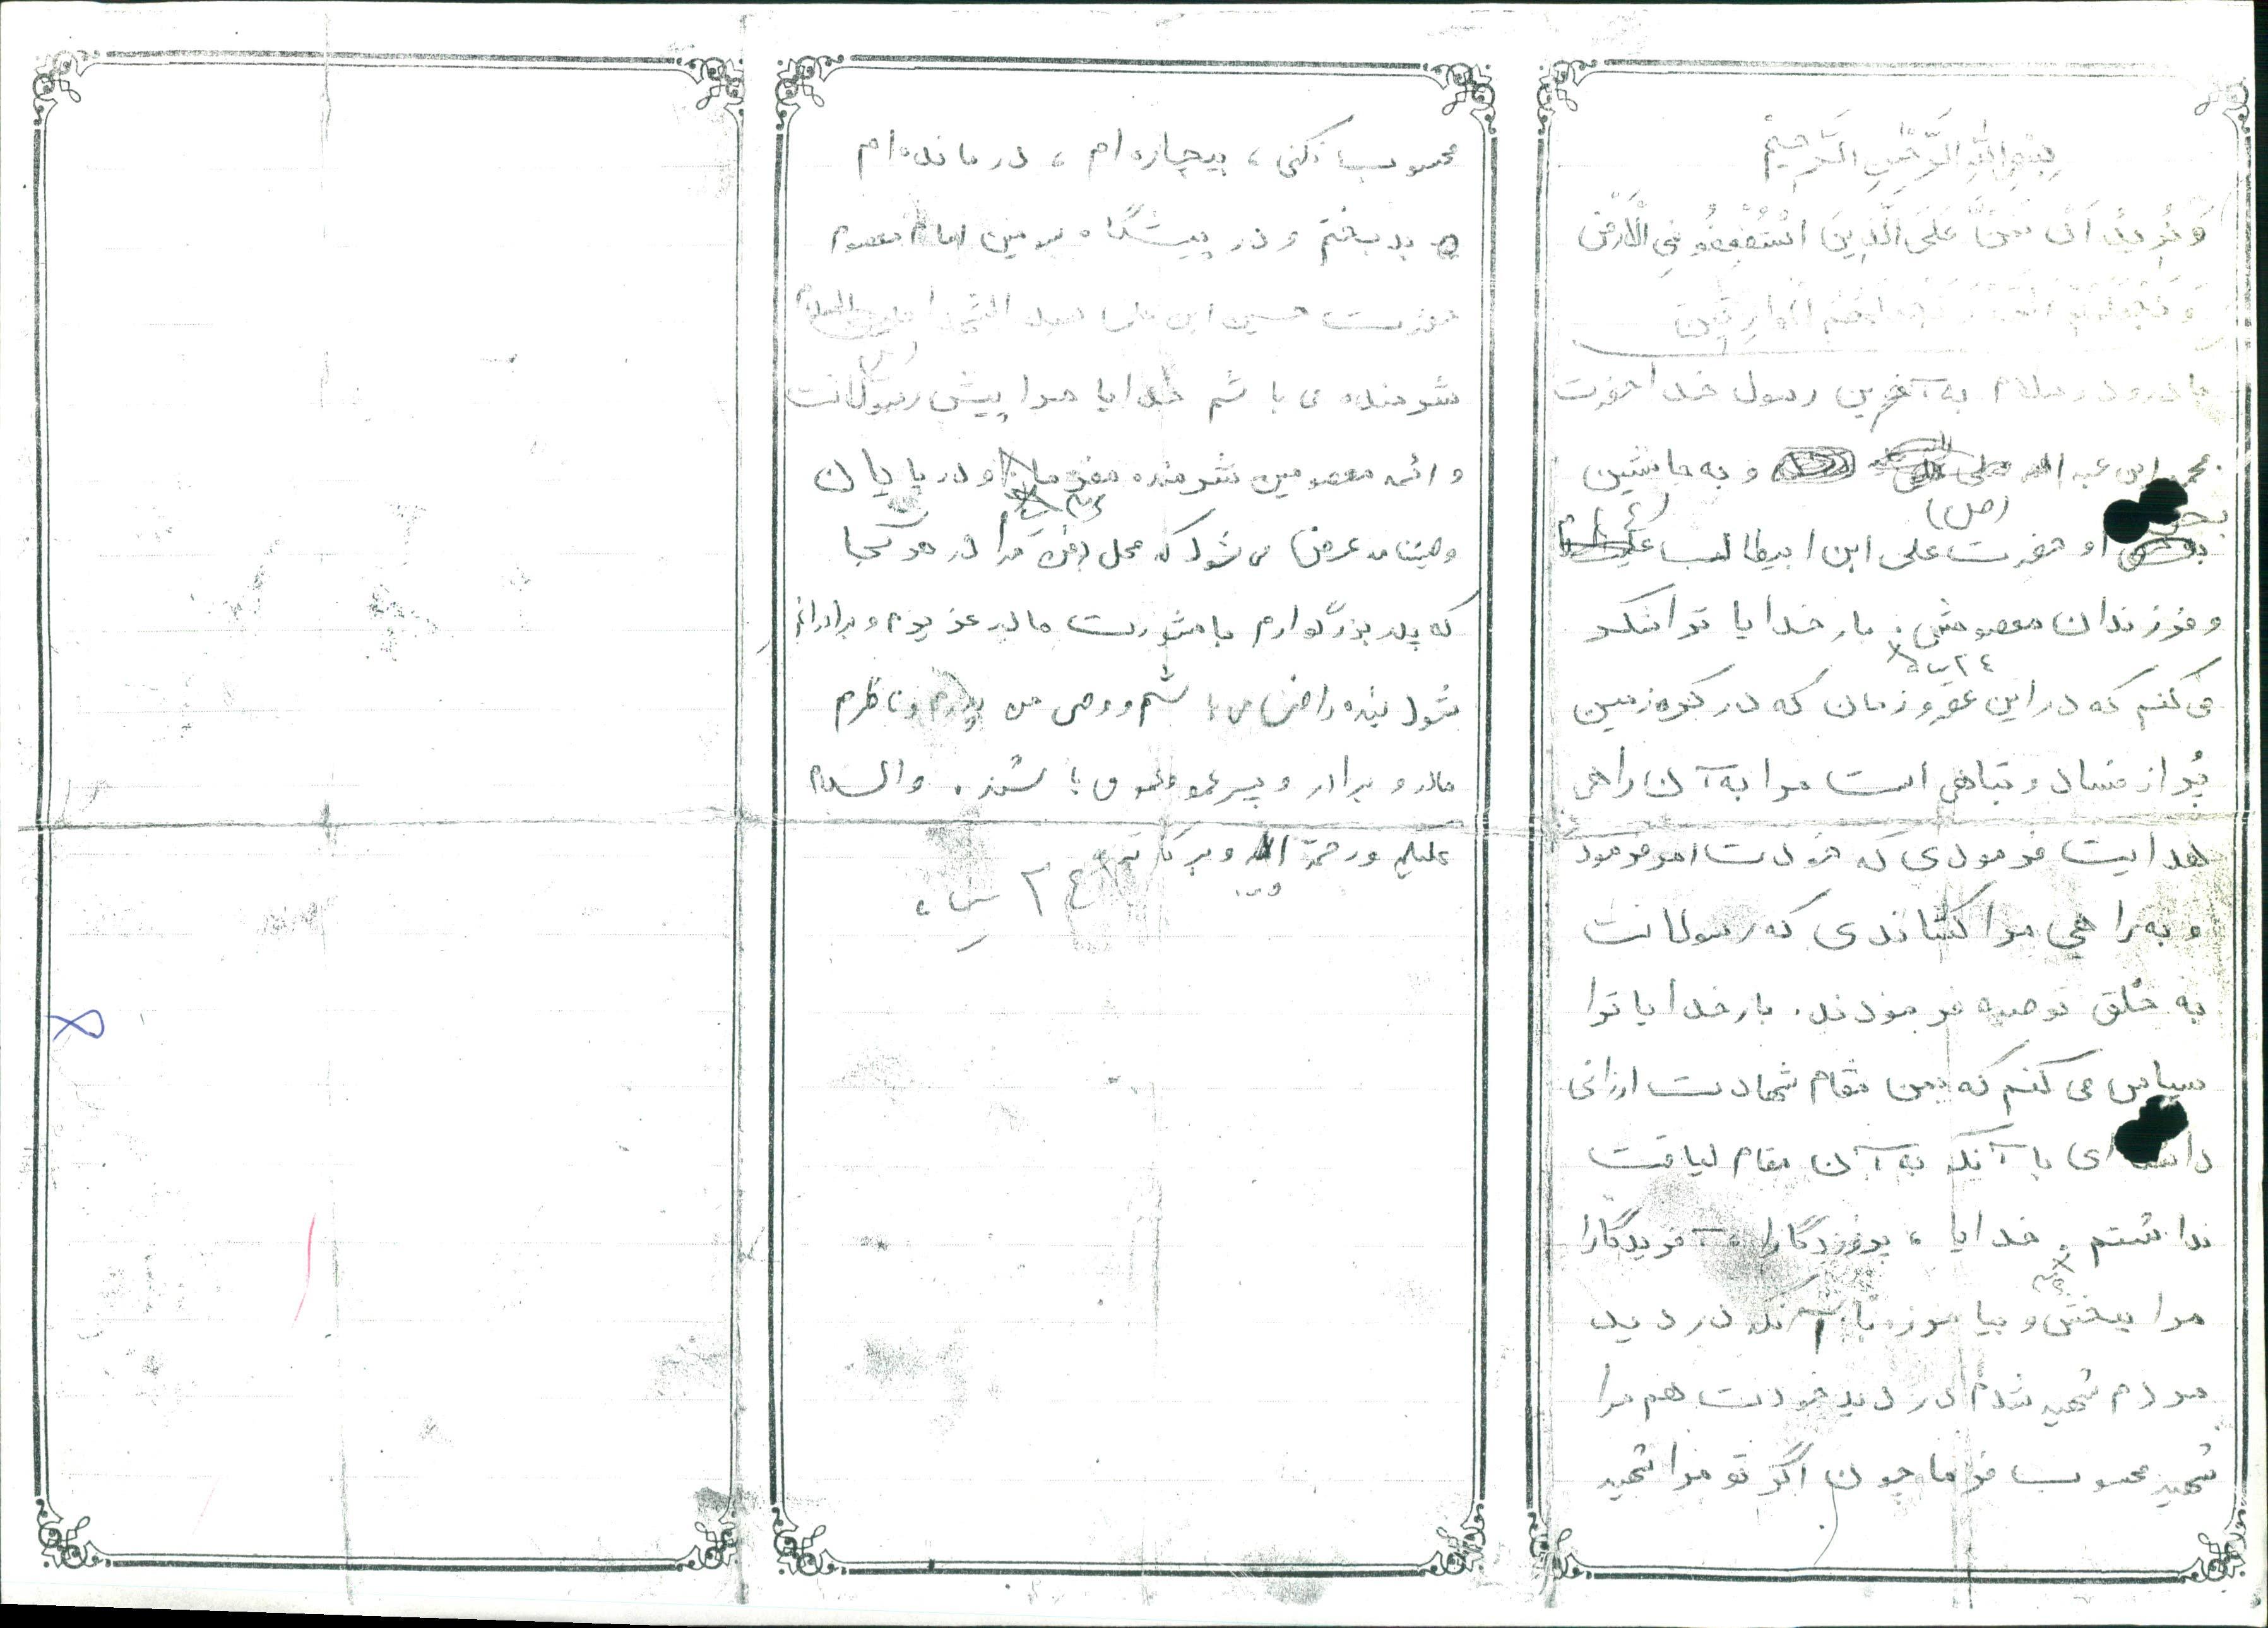 بِسْمِ اللهِ الرَّحْمنِ الرَّحیمْ
وَ نُریدُ اَنْ نَمُنَّ عَلَی الَّذینَ اسْتُضْعِفُو فِی الْاَرْضِ
وَ نَجْعَلَهُمْ اَئِمَّةً وَ نَجْعَلَهُمُ الْوارِثینَ
با درود و سلام به آخرین رسول خدا حضرت
محمد ابن عبدالله صلی و به جانشین
(ص) (ع)
بحق او حضرت علی ابن ابیطالب
و فرزندان معصومش. بار خدایا ترا شکر
می کنم که در این عصر و زمان که در کره زمین
پُر از فساد و تباهی است مرا به آن راهی
هدایت فرمودی که خودت امر فرمود
و به راهی مرا کشاندی که رسولانت
به خلق توصیه فرمودند. بار خدایا ترا
سپاس می کنم که بمن مقام شهادت ارزانی
داشته ای با آنکه به آن مقام لیاقت
نداشتم. خدایا، پروردگارا، آفریدگارا
مرا ببخش و بیامرز. با آنکه در دید
مردم شهید شدم در دید خودت هم مرا
شهید محسوب فرما چون اگر تو مرا شهید
محسوب نکنی، بیچاره ام، درمانده ام
بدبختم و در پیشگاه سومین امام معصوم
حضرت حسین ابن علی سید الشهدا
شرمنده می باشم خدایا مرا پیش رسولانت
و ائمه معصومین شرمنده مفرما و در پایان
وصیتنامه عرض می شود که محل دفن مرا در هر کجا
که پدر بزرگوارم با مشورت مادر عزیزم و برادرانم
شود بنده راضی می باشم و وصی من پدرم و ناظرم
مادر و برادر و پسر عمو و عموی باشند. والسلام
علیکم و رحمة الله و برکاته